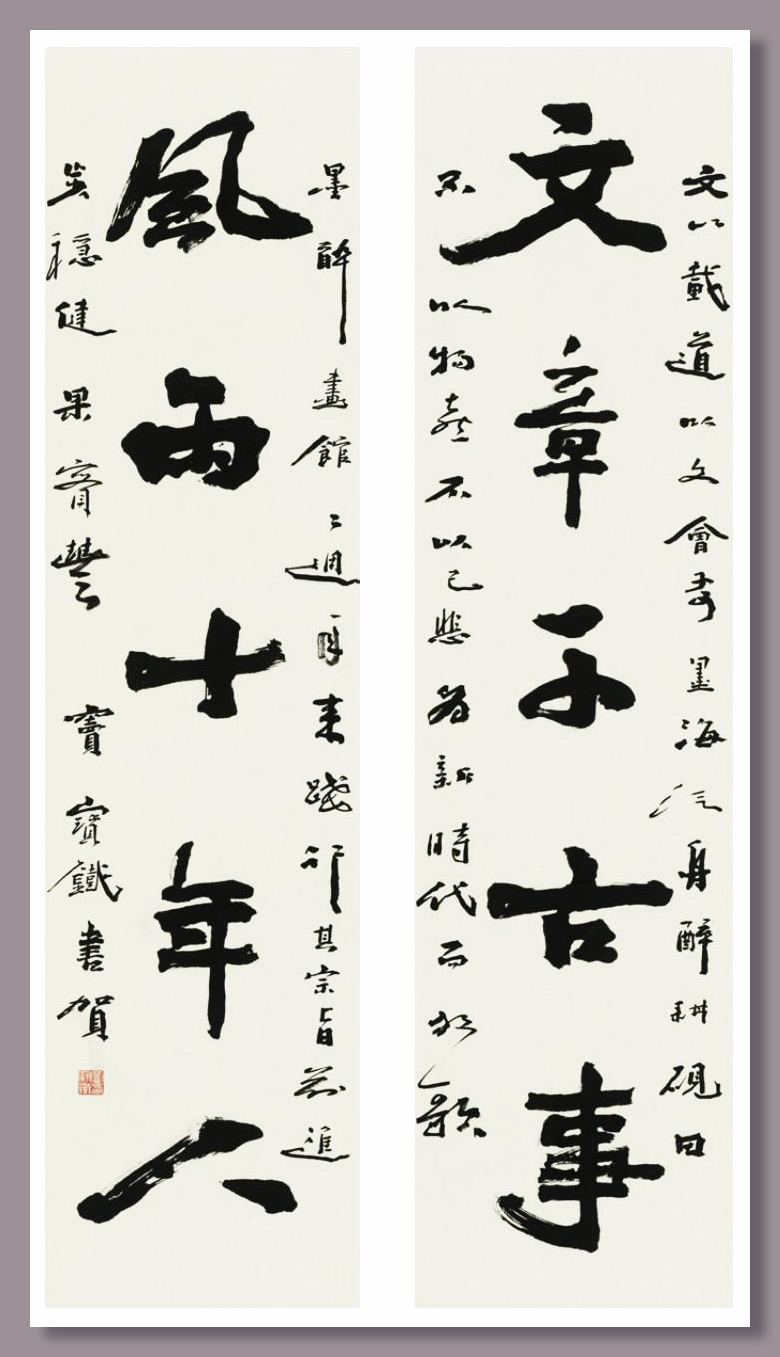 文以載道以文會友墨海泛舟醉耕硯田
文章千古事
不以物喜不以己悲為新時代而放歌
墨醉畫館二週年來踐行其宗旨前進
風雨十年人
步穩健果實豐竇寶鐵書賀